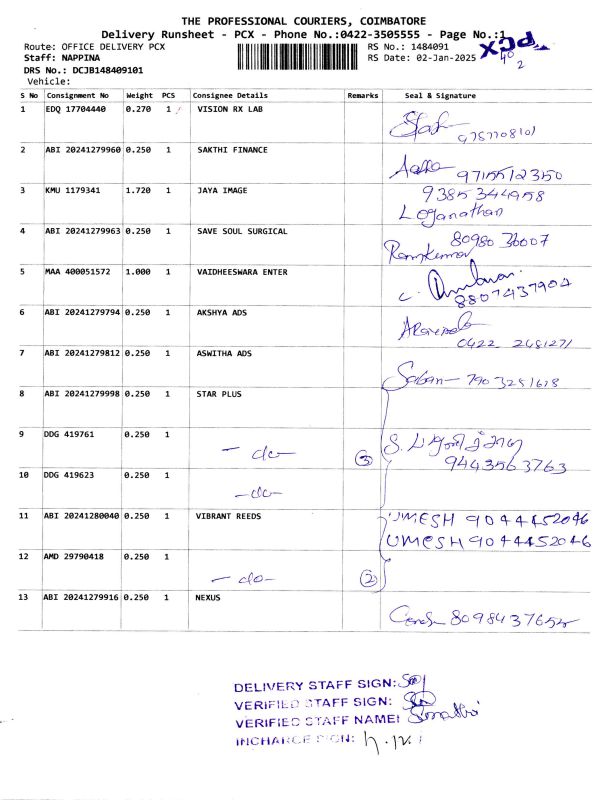 THE PROFESSIONAL COURIERS, COIMBATORE
Delivery Runsheet - PCX - Phone No.:0422-3505555 - Page No.:1
Route: OFFICE DELIVERY PCX RS No.: 1484091
PCX
Staff: NAPPINA RS Date: 02-Jan-2025
DRS No.: DCJB148409101
Vehicle:
S No Consignment No Weight PCS Consignee Details Remarks Seal & Signature
1 EDQ 17704440 0.270 1 VISION RX LAB
2 ABI 20241279960 0.250 1 SAKTHI FINANCE
9715512350
3 KMU 1179341 1.720 1 JAYA IMAGE 9385344958
Loganathan
4 ABI 20241279963 0.250 1 SAVE SOUL SURGICAL 80980 36007
Ramkumar
5 MAA 400051572 1.000 1 VAIDHEESWARA ENTER
8807437904
6 ABI 20241279794 0.250 1 AKSHYA ADS
0422 2481271
7 ABI 20241279812 0.250 1 ASWITHA ADS
8 ABI 20241279998 0.250 1 STAR PLUS
9 DDG 419761 0.250 1
- do - 3 9443563763
10 DDG 419623 0.250 1
- do -
11 ABI 20241280040 0.250 1 VIBRANT REEDS UMESH 9044452046
UMESH 9044452046
12 AMD 29790418 0.250 1
- do - 2
13 ABI 20241279916 0.250 1 NEXUS
DELIVERY STAFF SIGN:
VERIFIED STAFF SIGN:
VERIFIED STAFF NAME:
INCHARGE SIGN: